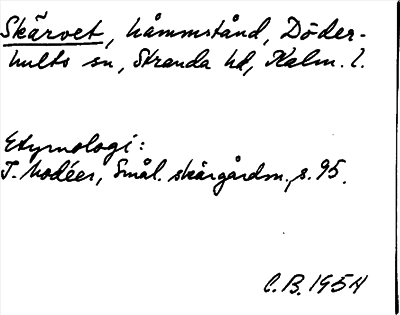 Skärvet, håmmstånd, Döder-
hults sn, Stranda hd, Kalm. l.
Etymologi:
I. Modéer, Smål. skärgårdsn., s. 95.
C.B. 1954